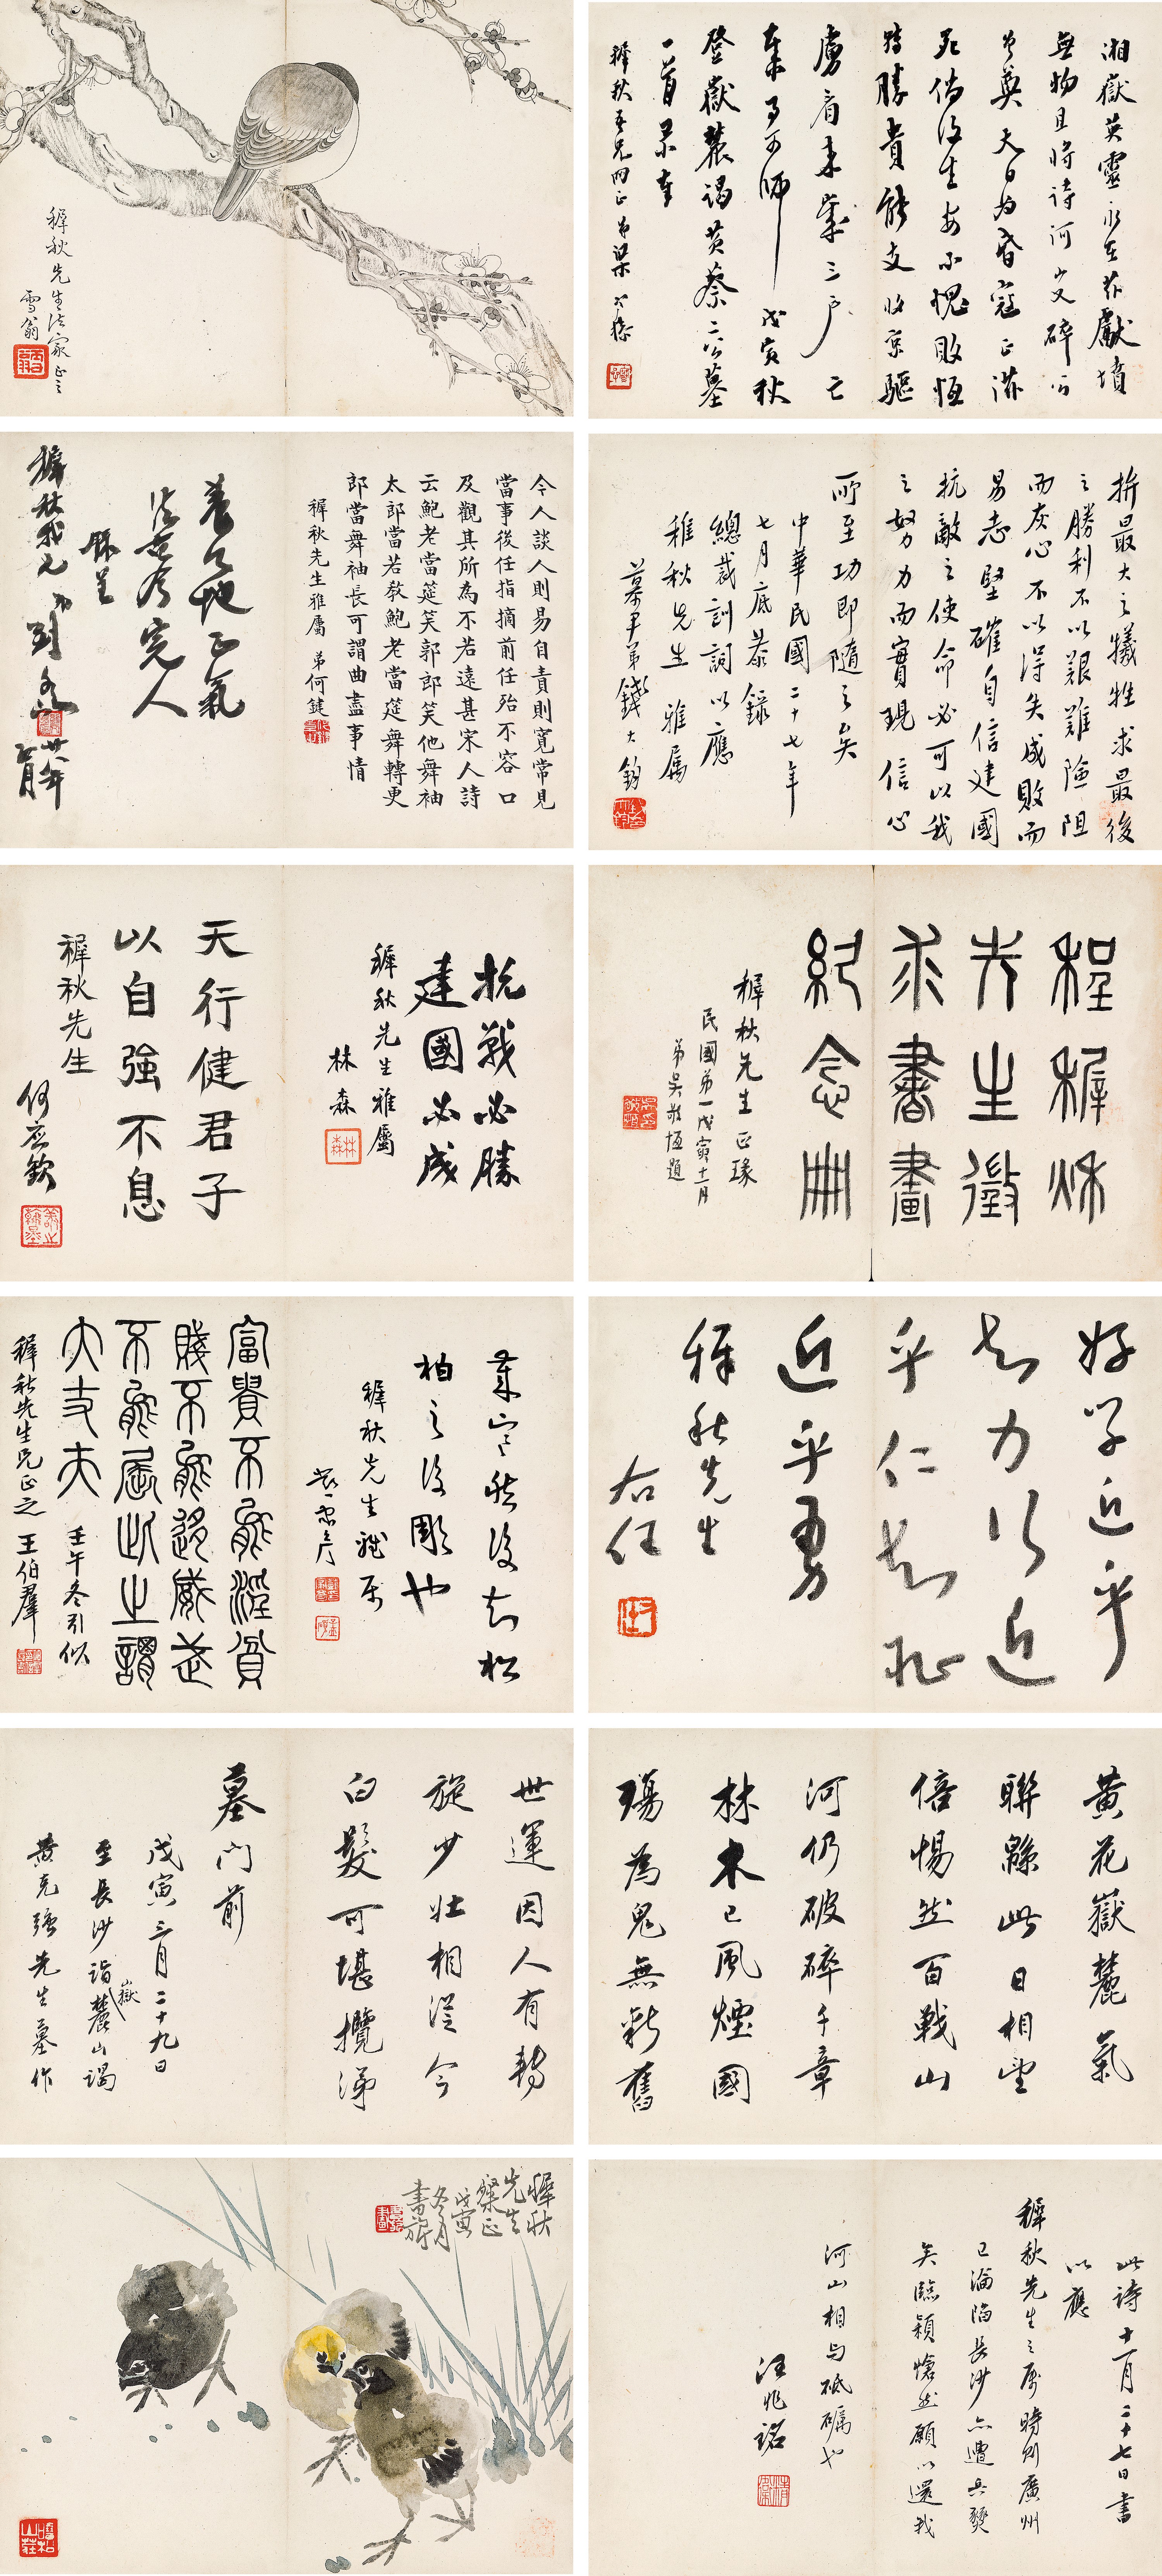 湘嶽英靈永在茲獻墳
無物且將詩河山碎公
奠天日為昏寇正滋
死後生安不愧敗恆
轉勝貴能支收京驅
虜看來歲三戶亡
秦事可師 戊寅秋
登嶽麓謁黃蔡二公墓
一首录奉
穉秋吾兄两正 弟梁寒操
穉秋先生法家正之
雪翁
拚最大之犧牲求最後
之勝利不以艱難險阻
而灰心不以得失成敗而
易志堅確自信建國
抗敵之使命必可以我
之努力而實現信心
所至功即隨之矣
中華民國二十七年
七月底恭錄
總裁訓詞以應
稚秋先生雅屬
慕尹弟錢大鈞
今人談人則易自責則寬常見
當事後任指摘前任殆不容口
及觀其所為不若遠甚宋人詩
云鮑老當筵笑郭郎笑他舞袖
太郎當若教鮑老當筵舞轉更
郎當舞袖長可謂曲盡事情
穉秋先生雅屬 弟何鍵
養天地正氣
法古今完人
錄呈
穉秋我兄 劉
程穉秌
先生徵
求書畫
紀念冊
穉秋先生正瑑
民國第一戊寅十一月
弟吳敬恆題
抗戰必勝
建國必成
穉秋先生雅屬
林森
天行健君子
以自強不息
穉秋先生
何应钦
好学近乎
知力行近
乎仁知恥
近乎勇
穉秋先生
右任
歲寒然後知松
柏之後彫也
穉秋先生雅屬
富貴不能淫貧
賤不能迻威武
不能屈此之謂
大丈夫 壬午冬引似
穉秋先生兄正之 王伯羣
黃花嶽麓氣
聯緜此日相望
倍惕然百戰山
河仍破碎千章
林木已風煙國
殤為鬼無新舊
世運因人有轉
旋少壯相從今
白髮可堪攬涕
墓門前
戊寅三月二十九日
至長沙詣嶽麓山謁
黃克強先生墓作
此詩十一月二十七日書
以應
穉秋先生之屬時則廣州
已淪陷長沙亦遭兵燹
矣臨穎愴然願以還我
河山相與砥礪也
汪兆銘
穉秋
先生
粲正
戊寅
冬月
書旂